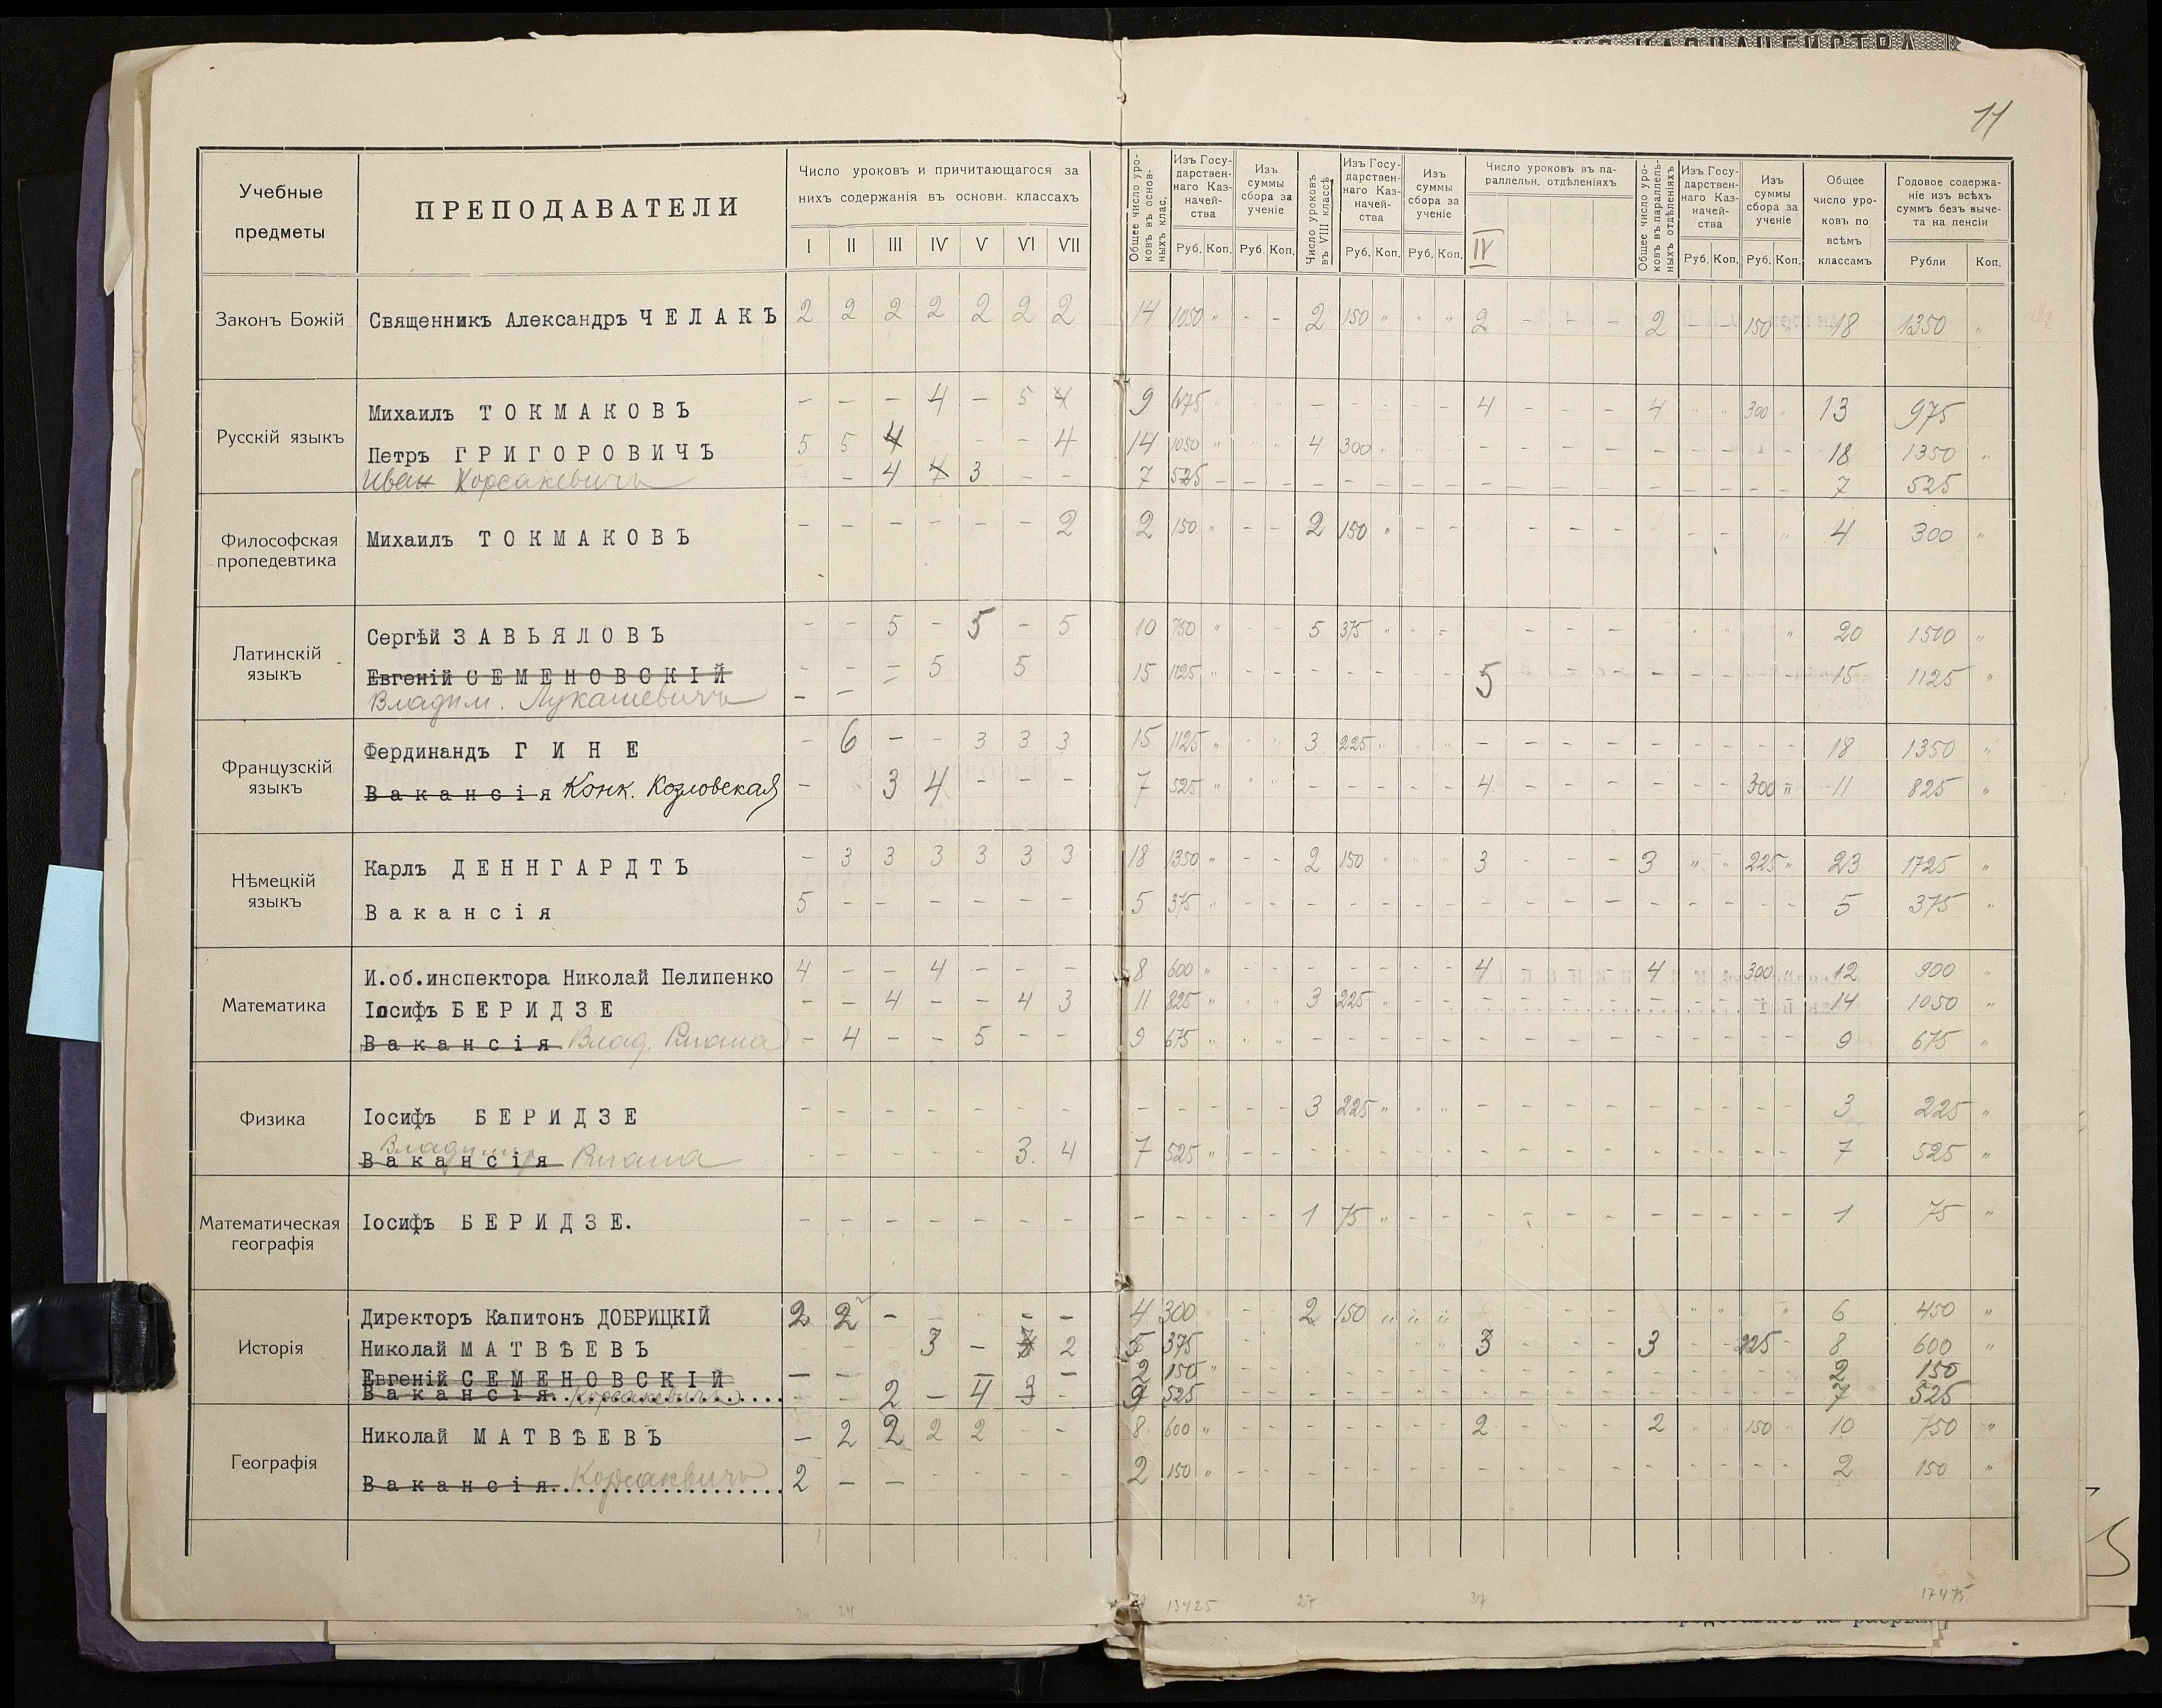 КАЗНАЧЕЙСТВА
11
Учебные предметы
ПРЕПОДАВАТЕЛИ
Число уроковъ и причитающагося за
нихъ содержанія въ основн. классахъ
I II III IV V VI VII
Общее число уро-
ковъ въ основ-
ныхъ клас.
Изъ Госу-
дарствен-
наго Каз-
начей-
ства
Руб. Коп.
Изъ
суммы
сбора за
ученіе
Руб. Коп.
Число уроковъ
въ VIII классѣ
Изъ Госу-
дарствен-
наго Каз-
начей-
ства
Руб. Коп.
Изъ
суммы
сбора за
ученіе
Руб. Коп.
Число уроковъ въ па-
раллельн. отдѣленіяхъ
IV
Общее число уро-
ковъ въ параллель-
ныхъ отдѣленіяхъ
Изъ Госу-
дарствен-
наго Каз-
начей-
ства
Руб. Коп.
Изъ
суммы
сбора за
ученіе
Руб. Коп.
Общее
число уро-
ковъ по
всѣмъ
классамъ
Годовое содержа-
ніе изъ всѣхъ
суммъ безъ выче-
та на пенсіи
Рубли Коп.
Законъ Божій
Священникъ Александръ ЧЕЛАКЪ 2 2 2 2 2 2 2 14 1050 " - - 2 150 " " " 2 - - - 2 - - 150 " 18 1350 "
Русскій языкъ
Михаилъ ТОКМАКОВЪ - - - 4 - 5 4 9 675 - 4 - - - 4 300 13 975
Петръ ГРИГОРОВИЧЪ 5 5 4 - - - 4 14 1050 " 4 300 18 1350 "
Иван Корсакевичъ - 4 4 3 - - 7 525 7 525
Философская
пропедевтика
Михаилъ ТОКМАКОВЪ - - - - - - 2 2 150 " - - 2 150 " - - 4 300 "
Латинскій
языкъ
Сергѣй ЗАВЬЯЛОВЪ - - 5 - 5 - 5 10 750 " 5 375 " 20 1500 "
Евгеній СЕМЕНОВСКІЙ - - - 5 5 15 1125 " 5 15 1125 "
Владим. Лукашевичъ - - =
Французскій
языкъ
Фердинандъ ГИНЕ - 6 - - 3 3 3 15 1125 " 3 225 " 18 1350 "
Вакансія Конк. Козловская - 3 4 - - - 7 525 " 4 300 " 11 825 "
Нѣмецкій
языкъ
Карлъ ДЕННГАРДТЪ - 3 3 3 3 3 3 18 1350 " - - 2 150 " 3 - - - 3 " " 225 " 23 1725 "
Вакансія 5 - - - - - - 5 375 " 5 375 "
Математика
И.об.инспектора Николай Пелипенко 4 - - 4 - - - 8 600 " 4 4 300 " 12 900 "
Іосифъ БЕРИДЗЕ - - 4 - - 4 3 11 825 " 3 225 " 14 1050 "
Вакансія Влад. - 4 - - 5 - - 9 675 " 9 675 "
Физика
Іосифъ БЕРИДЗЕ - - - - - - - 3 225 " 3 225 "
Владимир
Вакансія - - - - - 3. 4 7 525 " 7 525 "
Математическая
географія
Іосифъ БЕРИДЗЕ. - - - - - - - 1 75 " 1 75 "
Исторія
Директоръ Капитонъ ДОБРИЦКІЙ 2 2 - - - 4 300 2 150 " " " 6 450 "
Николай МАТВѢЕВЪ 3 - 3 2 5 375 3 - - - 3 - - 225 - 8 600 "
Евгеній СЕМЕНОВСКІЙ - - - - 2 150 " 2 150
Вакансія Корсакевичъ - - 2 - 4 3 - 9 525 7 525
Географія
Николай МАТВѢЕВЪ - 2 2 2 2 - - 8 600 " 2 - - - 2 150 10 750 "
Вакансія Корсакевичъ 2 - - - - - - 2 150 " 2 150 "
24 13425 27 17475